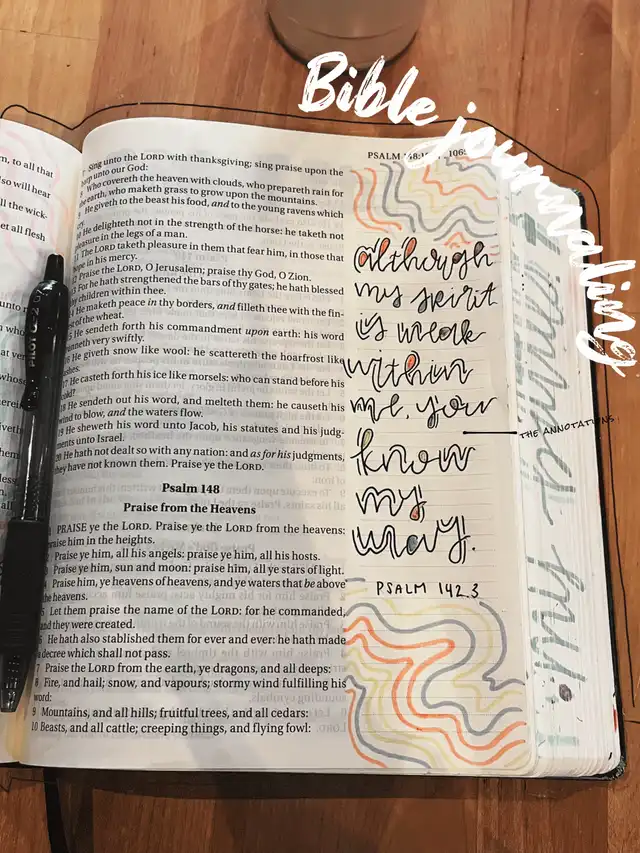 Bible journaling
PSALM 148:
m, to all that
so will hear
ll the wick-
et all flesh
Sing unto the LORD with thanksgiving; sing praise upon the
harp unto our God:
Who covereth the heaven with clouds, who prepareth rain for
the earth, who maketh grass to grow upon the mountains.
He giveth to the beast his food, and to the young ravens which
cry.
He delighteth not in the strength of the horse: he taketh not
pleasure in the legs of a man.
11 The LORD taketh pleasure in them that fear him, in those that
hope in his mercy.
12 Praise the LORD, O Jerusalem; praise thy God, O Zion.
For he hath strengthened the bars of thy gates; he hath blessed
thy children within thee.
He maketh peace in thy borders, and filleth thee with the fin-
est of the wheat.
He sendeth forth his commandment upon earth: his word
runneth very swiftly.
16 He giveth snow like wool: he scattereth the hoarfrost like
ashes.
17 He casteth forth his ice like morsels: who can stand before his
cold?
18 He sendeth out his word, and melteth them: he causeth his
wind to blow, and the waters flow.
19 He sheweth his word unto Jacob, his statutes and his judg-
ments unto Israel.
20 He hath not dealt so with any nation: and as for his judgments,
they have not known them. Praise ye the LORD.
Psalm 148
Praise from the Heavens
PRAISE ye the LORD. Praise ye the LORD from the heavens:
praise him in the heights.
Praise ye him, all his angels: praise ye him, all his hosts.
Praise ye him, sun and moon: praise him, all ye stars of light.
Praise him, ye heavens of heavens, and ye waters that be above
the heavens.
5 Let them praise the name of the LORD: for he commanded,
and they were created.
6 He hath also stablished them for ever and ever: he hath made
a decree which shall not pass.
7 Praise the LORD from the earth, ye dragons, and all deeps:
8 Fire, and hail; snow, and vapours; stormy wind fulfilling his
word:
9 Mountains, and all hills; fruitful trees, and all cedars:
10 Beasts, and all cattle; creeping things, and flying fowl:
although
my spirit
is weak
within
me, you
know
my
way.
PSALM 142:3
THE ANNOTATIONS!
PILOT G-2 07